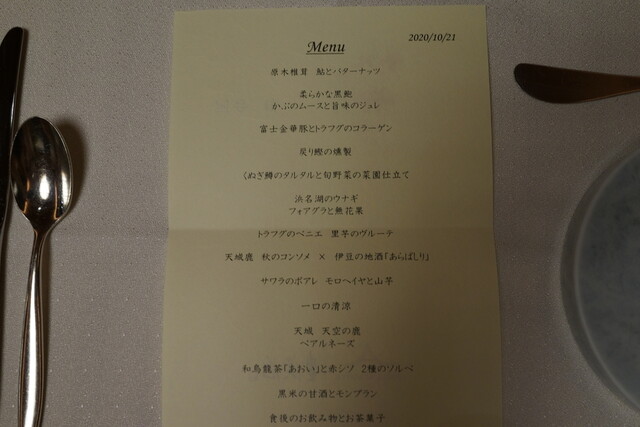 2020/10/21
Menu
原木椎茸 鮎とバターナッツ
柔らかな黒鮑
かぶのムースと旨味のジュレ
富士金華豚とトラフグのコラーゲン
炙り鰹の燻製
くぬぎ鱒のタルタルと旬野菜の菜園仕立て
浜名湖のウナギ
フォアグラと無花果
トラフグのベニエ 里芋のヴルーテ
天城鹿 秋のコンソメ × 伊豆の地酒「あらばしり」
サワラのポアレ モロヘイヤと山芋
一口の清涼
天城 天空の鹿
ベアルネーズ
和烏龍茶「あおい」と赤シソ 2種のソルベ
黒米の甘酒とモンブラン
食後のお飲み物とお茶菓子